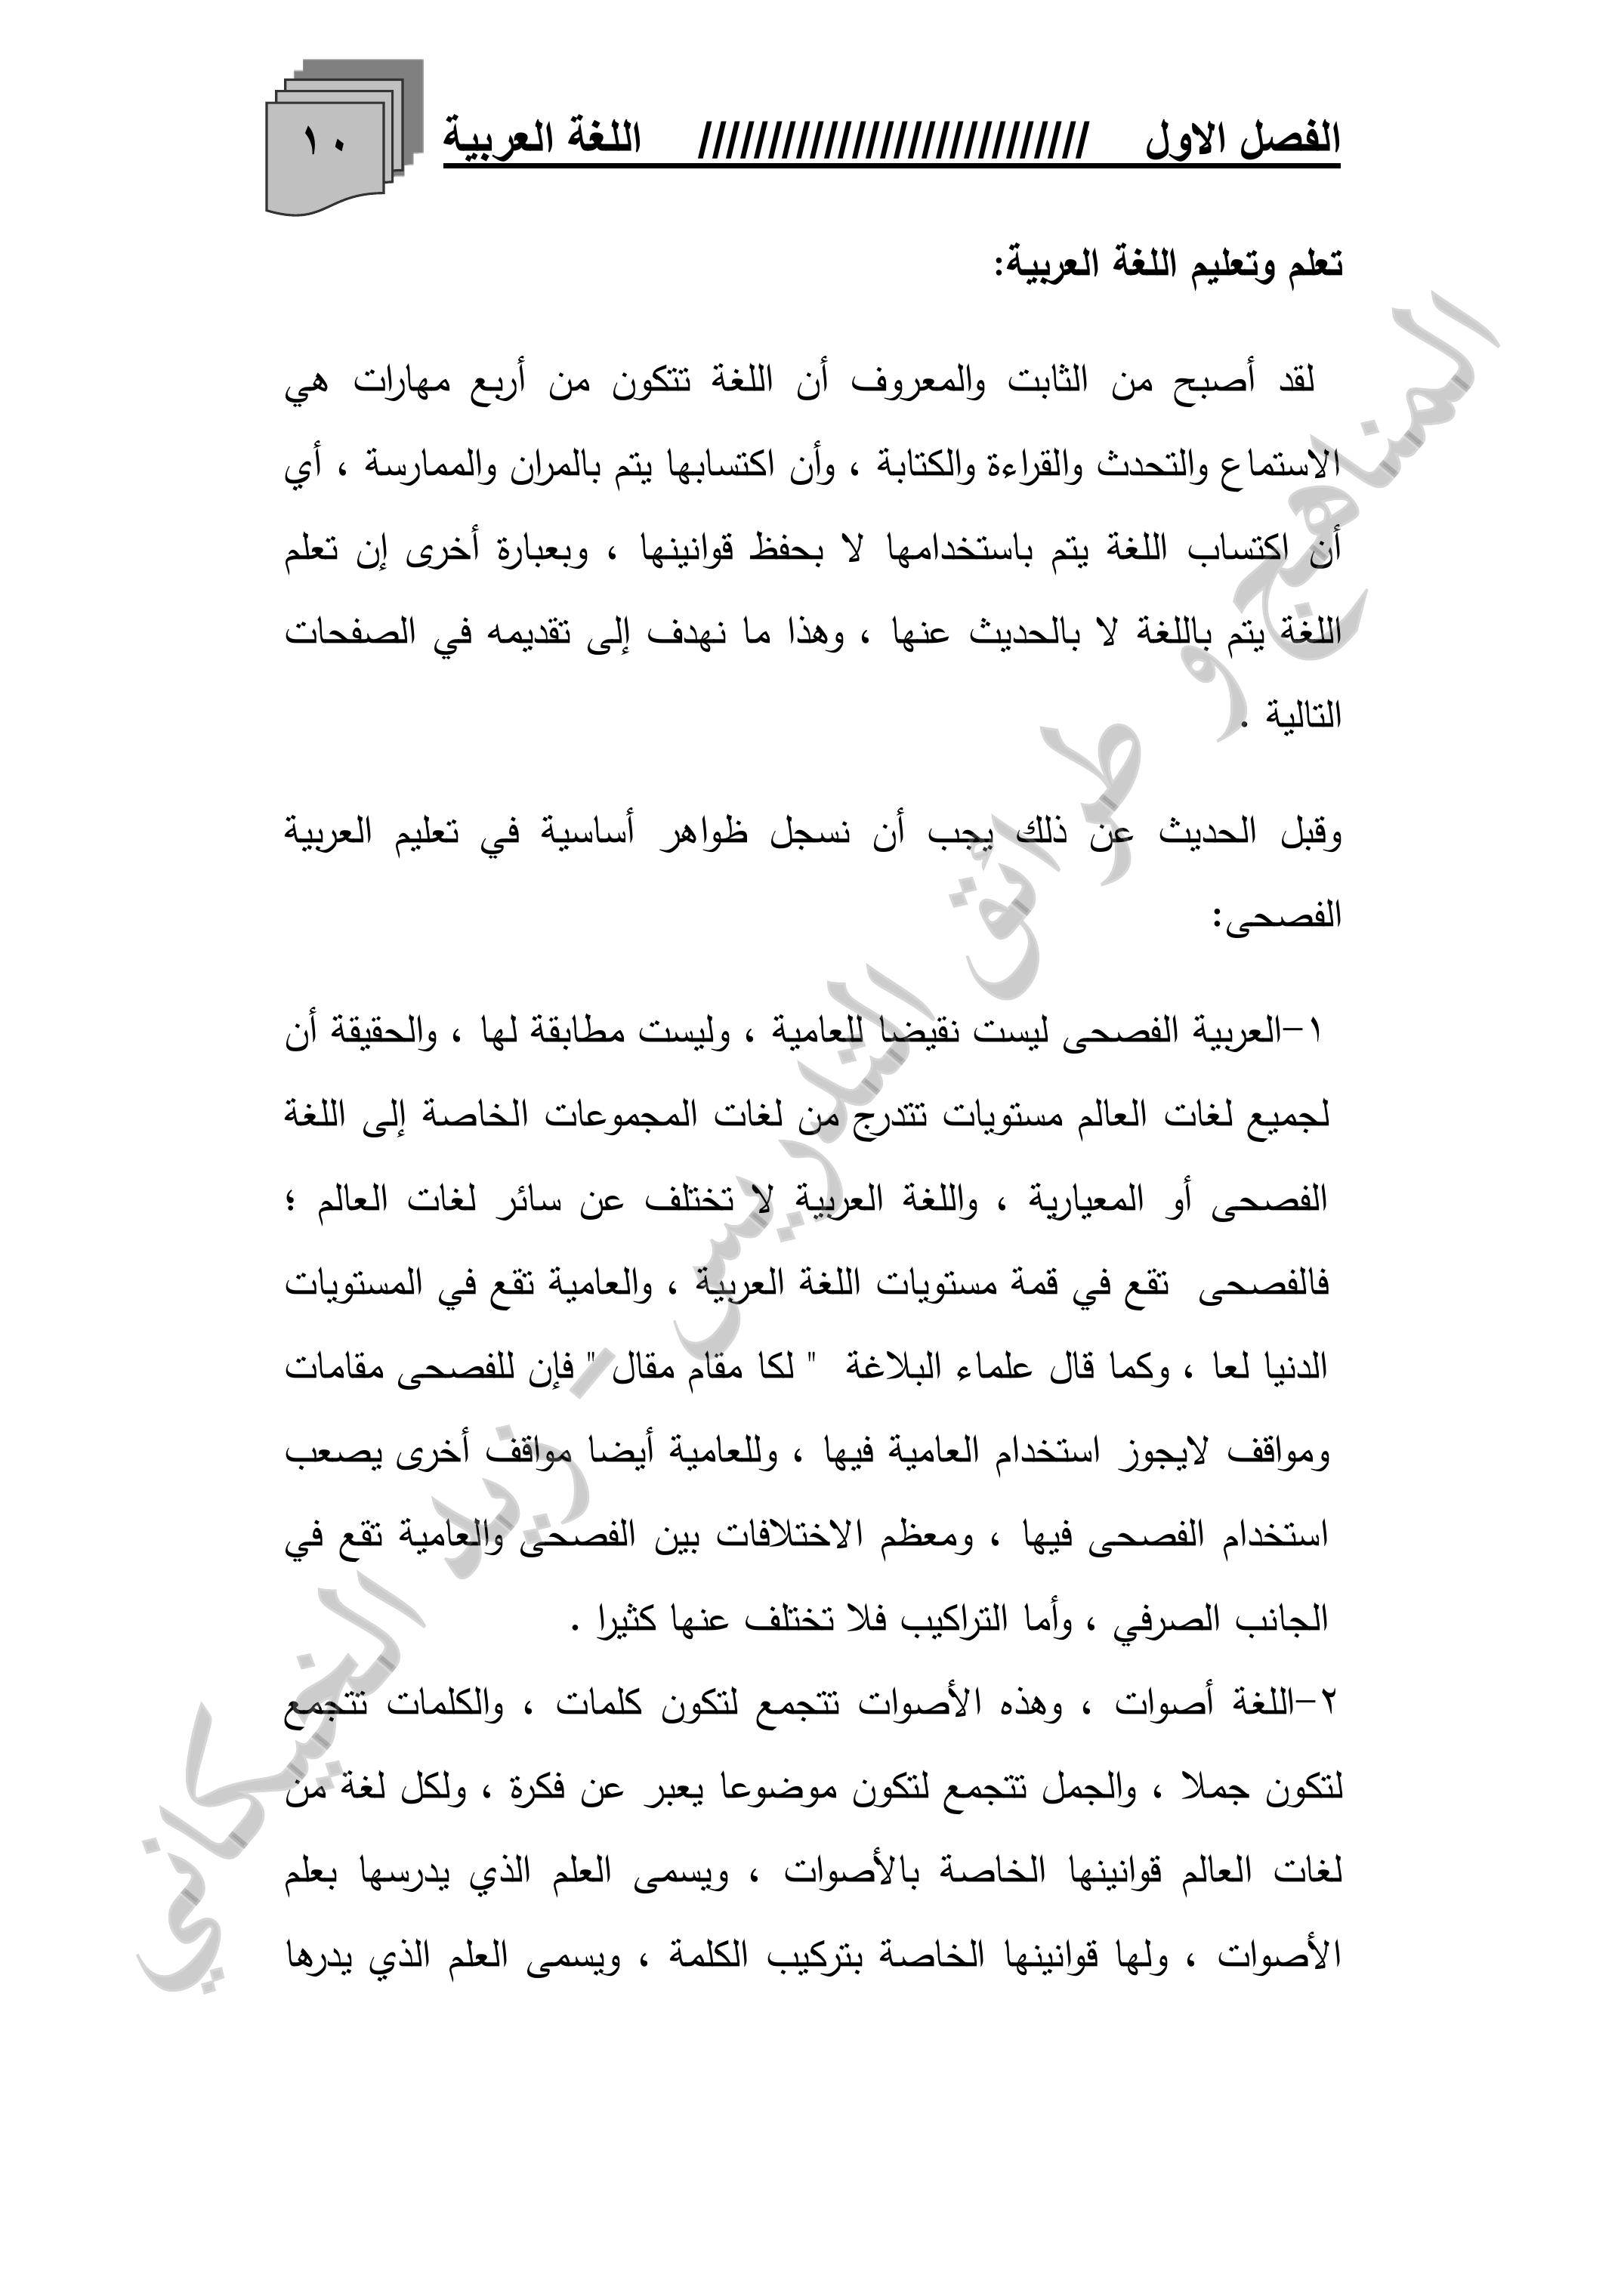 الفصل الاول //////////////////////////// اللغة العربية
١٠
تعلم وتعليم اللغة العربية:
لقد أصبح من الثابت والمعروف أن اللغة تتكون من أربع مهارات هي
الاستماع والتحدث والقراءة والكتابة ، وأن اكتسابها يتم بالمران والممارسة ، أي
أن اكتساب اللغة يتم باستخدامها لا بحفظ قوانينها ، وبعبارة أخرى إن تعلم
اللغة يتم باللغة لا بالحديث عنها ، وهذا ما نهدف إلى تقديمه في الصفحات
التالية .
وقبل الحديث عن ذلك يجب أن نسجل ظواهر أساسية في تعليم العربية
الفصحى:
١-العربية الفصحى ليست نقيضا للعامية ، وليست مطابقة لها ، والحقيقة أن
لجميع لغات العالم مستويات تتدرج من لغات المجموعات الخاصة إلى اللغة
الفصحى أو المعيارية ، واللغة العربية لا تختلف عن سائر لغات العالم ؛
فالفصحى تقع في قمة مستويات اللغة العربية ، والعامية تقع في المستويات
الدنيا لعا ، وكما قال علماء البلاغة " لكا مقام مقال " فإن للفصحى مقامات
ومواقف لايجوز استخدام العامية فيها ، وللعامية أيضا مواقف أخرى يصعب
استخدام الفصحى فيها ، ومعظم الاختلافات بين الفصحى والعامية تقع في
الجانب الصرفي ، وأما التراكيب فلا تختلف عنها كثيرا .
٢-اللغة أصوات ، وهذه الأصوات تتجمع لتكون كلمات ، والكلمات تتجمع
لتكون جملا ، والجمل تتجمع لتكون موضوعا يعبر عن فكرة ، ولكل لغة من
لغات العالم قوانينها الخاصة بالأصوات ، ويسمى العلم الذي يدرسها بعلم
الأصوات ، ولها قوانينها الخاصة بتركيب الكلمة ، ويسمى العلم الذي يدرها
المناهج و طرائق التدريس - زيد الخيكاني